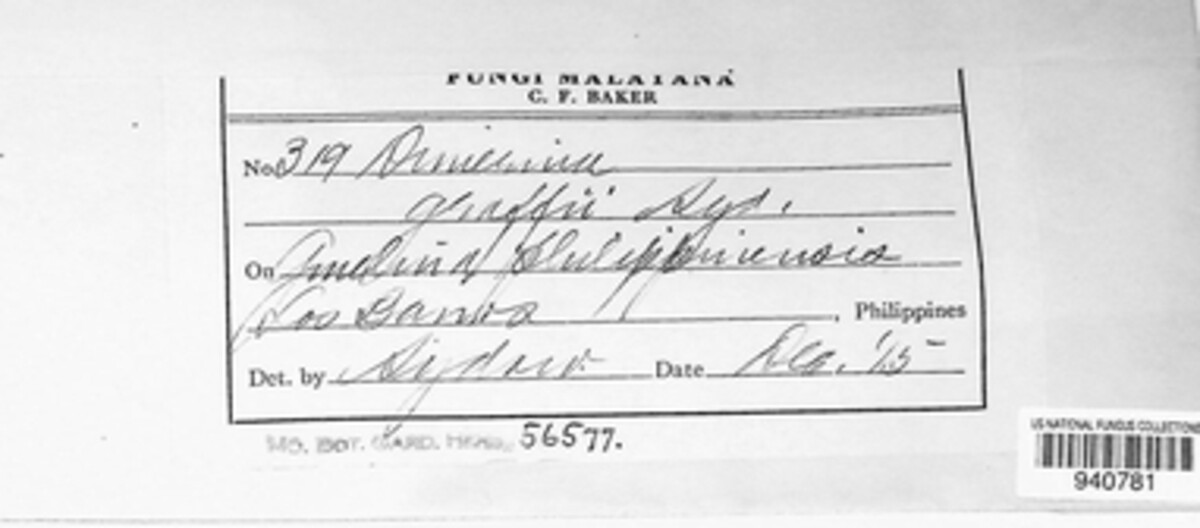 FUNGI MALAYANA
C. F. BAKER
No. 319 Dimerina
graffii Syd.
On Gmelina philippinensis
Los Banos, Philippines
Det. by Sydow Date Dec. '15
MO. BOT. GARD. HERB. 56577.
US NATIONAL FUNGUS COLLECTIONS
940781